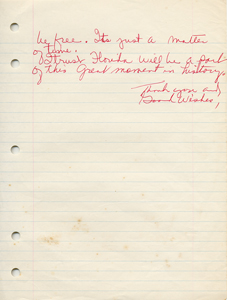 be free. Its just a matter
of time.
I trust Florida will be a part
of this Great moment in history.
Thank you and
Good Wishes,